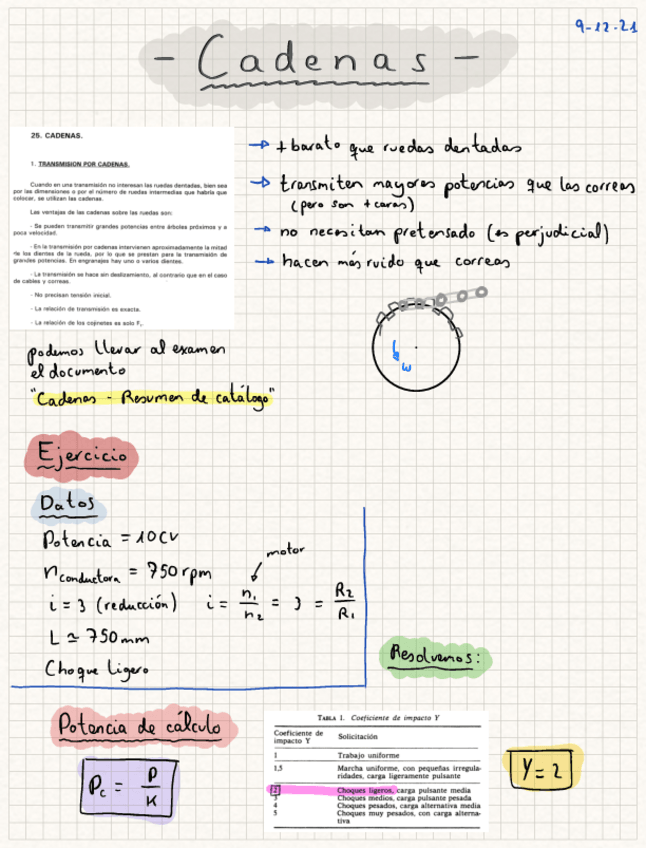 9-12-21
- Cadenas -
25. CADENAS.
1. TRANSMISION POR CADENAS.
Cuando en una transmisión no interesan las ruedas dentadas, bien sea
por las dimensiones o por el número de ruedas intermedias que habría que
colocar, se utilizan las cadenas.
Las ventajas de las cadenas sobre las ruedas son:
- Se pueden transmitir grandes potencias entre árboles próximos y a
poca velocidad.
- En la transmisión por cadenas intervienen aproximadamente la mitad
de los dientes de la rueda, por lo que se prestan para la transmisión de
grandes potencias. En engranajes hay uno o varios dientes.
- La transmisión se hace sin deslizamiento, al contrario que en el caso
de cables y correas.
- No precisan tensión inicial.
- La relación de transmisión es exacta.
- La relación de los cojinetes es solo F
→ + barato que ruedas dentadas
→ transmiten mayores potencias que las correas
(pero son + caras)
→ no necesitan pretensado (es perjudicial)
→ hacen más ruido que correas
ω
podemos llevar al examen
el documento
"Cadenas - Resumen de catálogo"
Ejercicio
Datos
Potencia = 10CV
n conductora = 750 rpm
motor
i = 3 (reducción) i = n₁/n₂ = 3 = R₂/R₁
L ≃ 750 mm
Choque ligero
Resolvemos:
Potencia de cálculo
Pc = P/K
TABLA 1. Coeficiente de impacto Y
Coeficiente de
impacto Y Solicitación
1 Trabajo uniforme
1,5 Marcha uniforme, con pequeñas irregula-
ridades, carga ligeramente pulsante
2 Choques ligeros, carga pulsante media
3 Choques medios, carga pulsante pesada
4 Choques pesados, carga alternativa media
5 Choques muy pesados, con carga alterna-
tiva
Y = 2